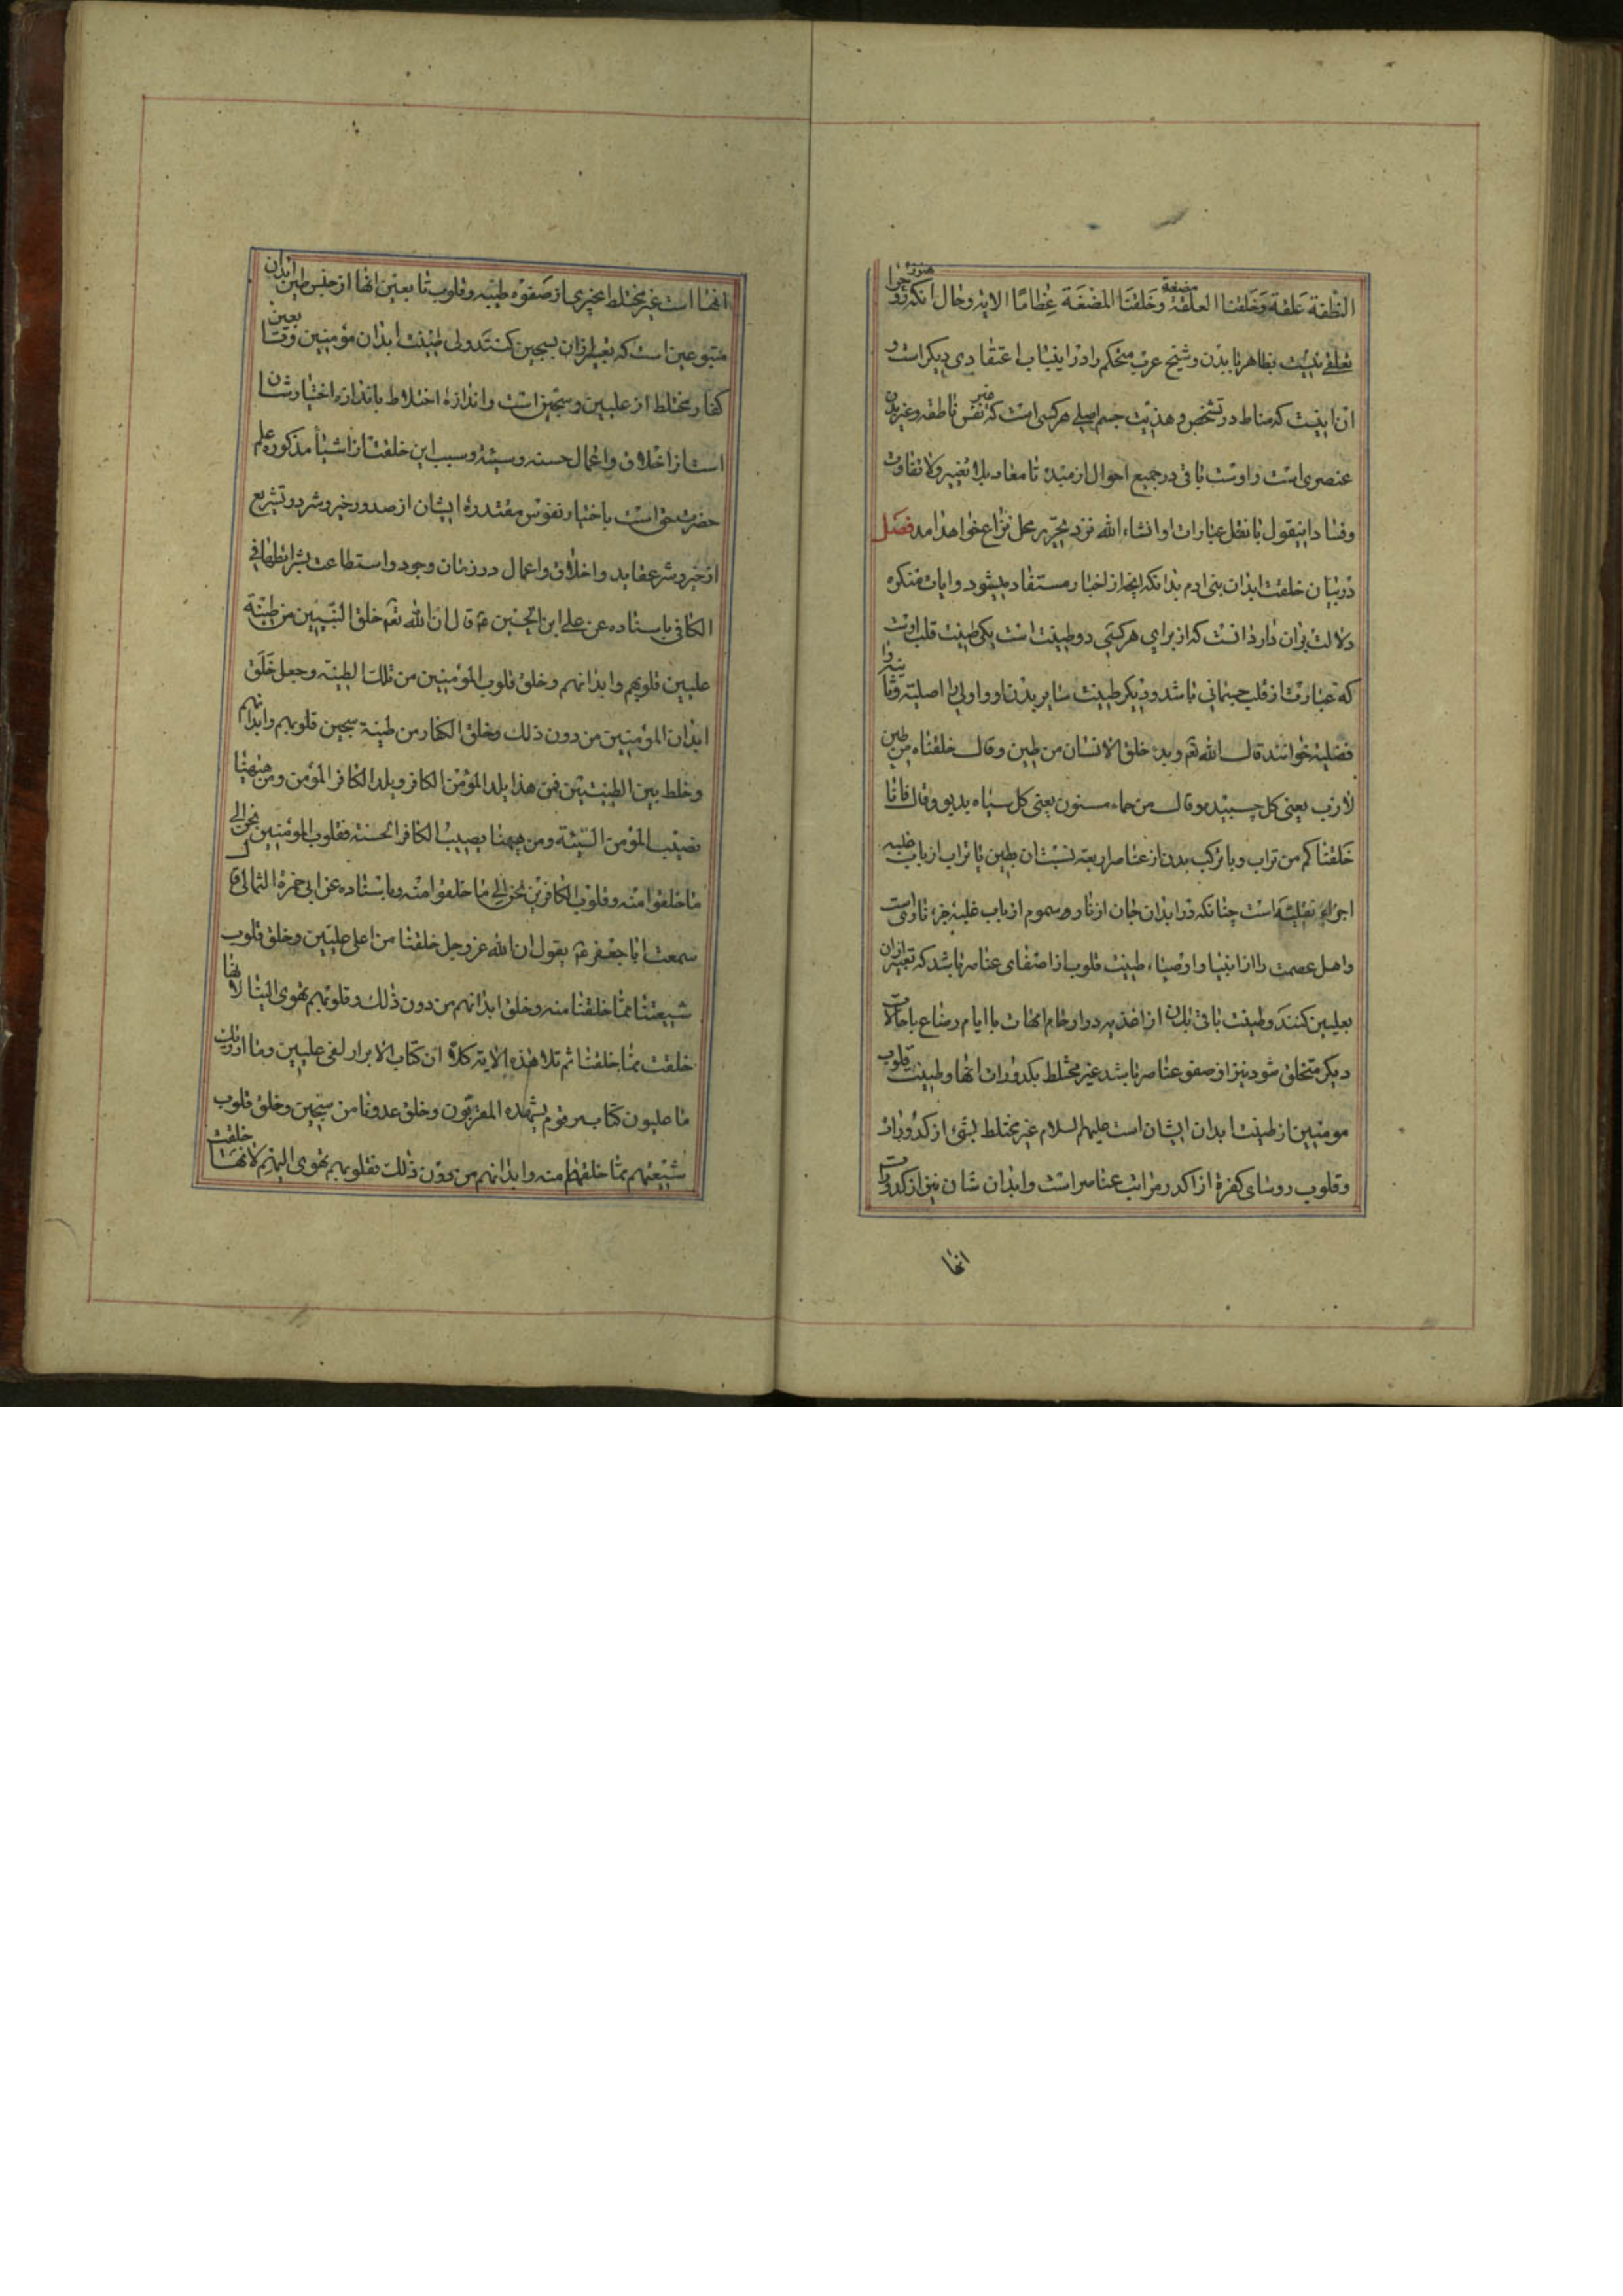 النطفة علقة وخلقنا العلقة مضغة وخلقنا المضغة عظاما الایه وحال آنکه هنوز
تعلقی نیست بظاهر با بدن و شیخ عرب متحکم را در اینباب اعتقادی دیکر است و
ان اینست که مناط در تشخص و هذیت جسم اصلی هر کسی است که نفس ناطقه و غیر بدن
عنصری است و اوست باقی در جمیع احوال از مبدء تا معاد بلا تغییر ولا تفاوت
وفساد اینقول با نقل عبارات او انشاء الله نزد تحریر محل نزاع خواهد امد فصل
در بیان خلقت ابدان بنی ادم بدانکه انچه از اخبار مستفاد میشود و ایات متکره
دلالت بران دارد انست که از برای هر کسی دو طینت است یکی طینت قلب اوست
که عبارت از قلب جسمانی باشد و دیکر طینت سایر بدن او و اولی را اصلیة و ثانیه را
فضلیة خوانند قال الله تعم وبدء خلق الانسان من طین وقال خلقناه من طین
لازب یعنی کل چسبنده وقال من حماء مسنون یعنی کل سیاه بدبو وقال فانا
خلقناکم من تراب و با ترکب بدن از عناصر اربعه نسبتان بطین یا تراب از باب غلبه
اجزاء ثقلیه است چنانکه در ابدان جان از نار و سموم از باب غلبه جزء ناریست
واهل عصمت را از انبیا و اوصیاء طینت قلوب از اصفای عناصر باشد که تعبیر ازان
بعلیین کنند و طینت باقی بدن از اغذیه در ارحام امهات یا ایام رضاع یا حالات
دیکر متخلق شود نیز از صفو عناصر باشد غیر مختلط بکدورات انها و طینت قلوب
مومنین از طینت ابدان ایشان است علیهم السلام غیر مختلط بشیء از کدورات
وقلوب روسای کفرة از اکدر مراتب عناصر است وابدان شان نیز از کدورات
انها
انها است غیر مختلط بچیزی از صفوه طیبه وقلوب تابعین انها از جنس طین ابدان
متبوعین است که تعبیر ازان بسجین کنند ولی طینت ابدان مؤمنین و تابعین
کفار مختلط از علیین و سجین است و اندازه اختلاط باندازه اختیار شان
است از اخلاق و اعمال حسنه و سیئه و سبب این خلقت از اشیاء مذکوره علم
حضرت حق است باختیار نفوس مقتدره ایشان از صدور خیر و شر در تشریع
از خیر و شر عقاید و اخلاق و اعمال در زمان وجود و استطاعت بشرائطها فی
الکافی باسناده عن علی ابن الحسین ع قال ان الله تعم خلق النبیین من طینة
علیین قلوبهم وابدانهم وخلق قلوب المؤمنین من تلک الطینة وجعل خلق
ابدان المؤمنین من دون ذلک وخلق الکفار من طینة سجین قلوبهم وابدانهم
وخلط بین الطینتین فمن هذا یلد المؤمن الکافر ویلد الکافر المؤمن ومن هیهنا
یصیب المؤمن السیئة ومن هیهنا یصیب الکافر الحسنة فقلوب المؤمنین تحن الی
ما خلقوا منه وقلوب الکافرین تحن الی ما خلقوا منه وباسناده عن ابی حمزة الثمالی قال
سمعت ابا جعفر ع یقول ان الله عز وجل خلقنا من اعلی علیین وخلق قلوب
شیعتنا مما خلقنا منه وخلق ابدانهم من دون ذلک وقلوبهم تهوی الینا لانها
خلقت مما خلقنا ثم تلا هذه الایة کلا ان کتاب الابرار لفی علیین وما ادریک
ما علیون کتاب مرقوم یشهده المقربون وخلق عدونا من سجین وخلق قلوب
شیعتهم مما خلقهم منه وابدانهم من دون ذلک فقلوبهم تهوی الیهم لانها خلقت